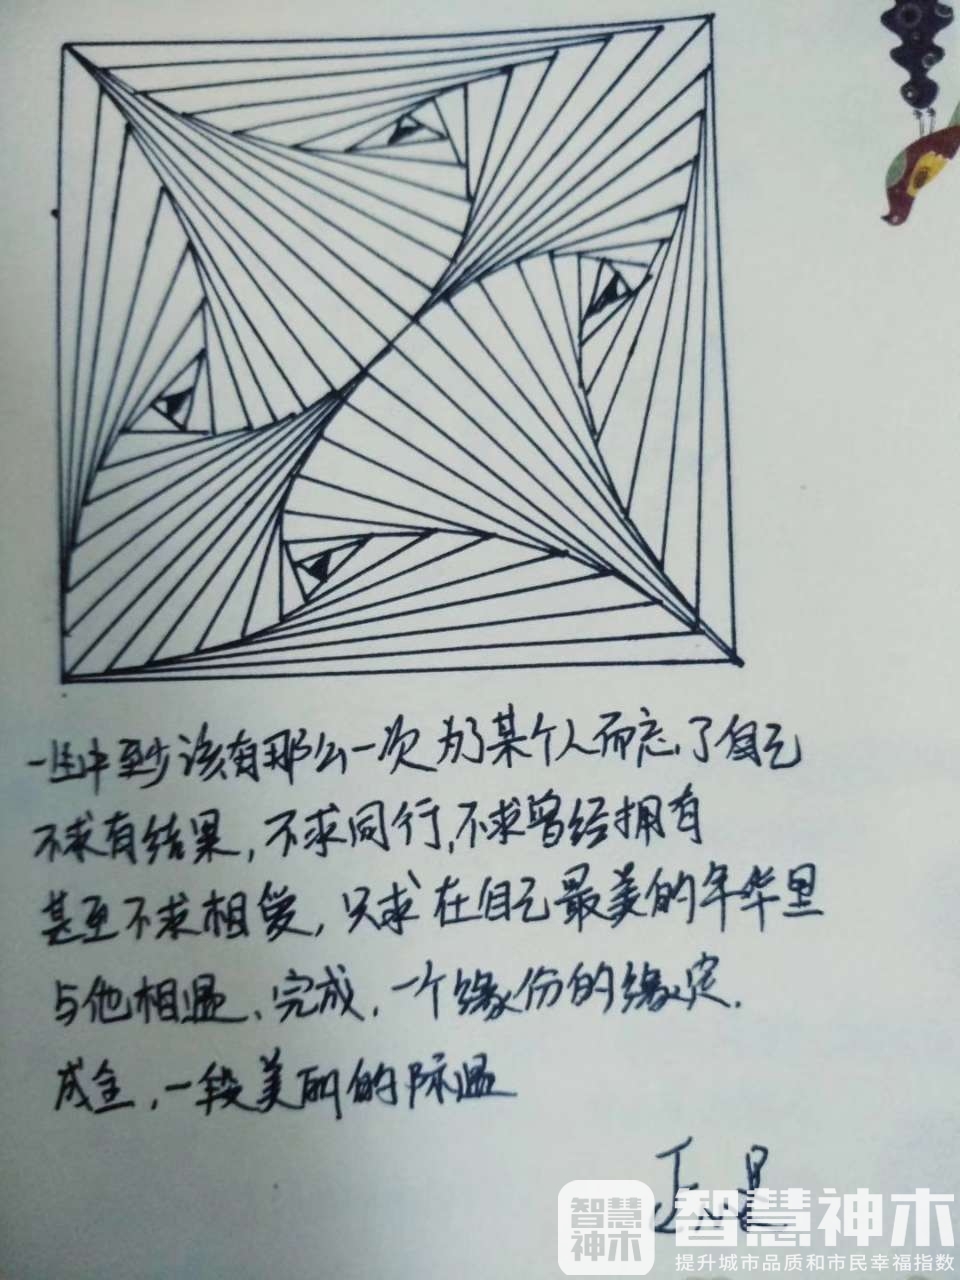 一生中至少该有那么一次为了某个人而忘了自己
不求有结果,不求同行,不求曾经拥有
甚至不求相爱,只求在自己最美的年华里
与他相遇、完成,一个缘份的缘定.
成全,一段美丽的际遇
智慧
神木
智慧神木
提升城市品质和市民幸福指数